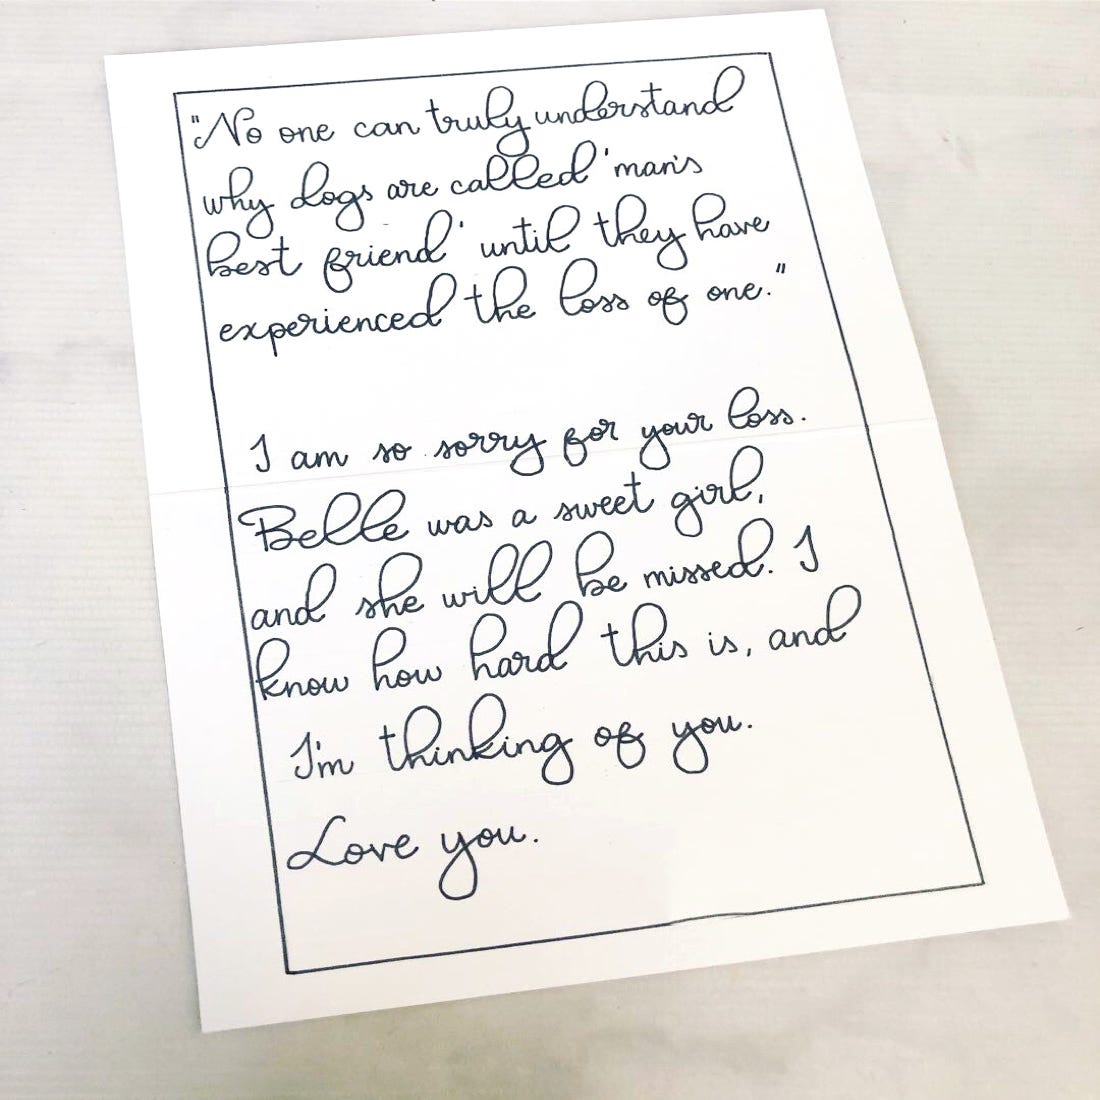 "No one can truly understand
why dogs are called 'man's
best friend' until they have
experienced the loss of one."
I am so sorry for your loss.
Belle was a sweet girl,
and she will be missed. I
know how hard this is, and
I'm thinking of you.
Love you.